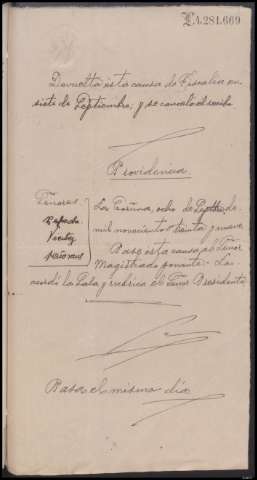 L1.281.669
Devuelta esta causa de Fiscalía en
siete de Septiembre, y se canceló el recibo
Providencia
Señores
La Coruña, ocho de Septbre. de
mil novecientos treinta y nueve
Pase esta causa al Señor
Magistrado ponente.- Lo
acordó la Sala y rubrica el Señor Presidente
Pasa el mismo día